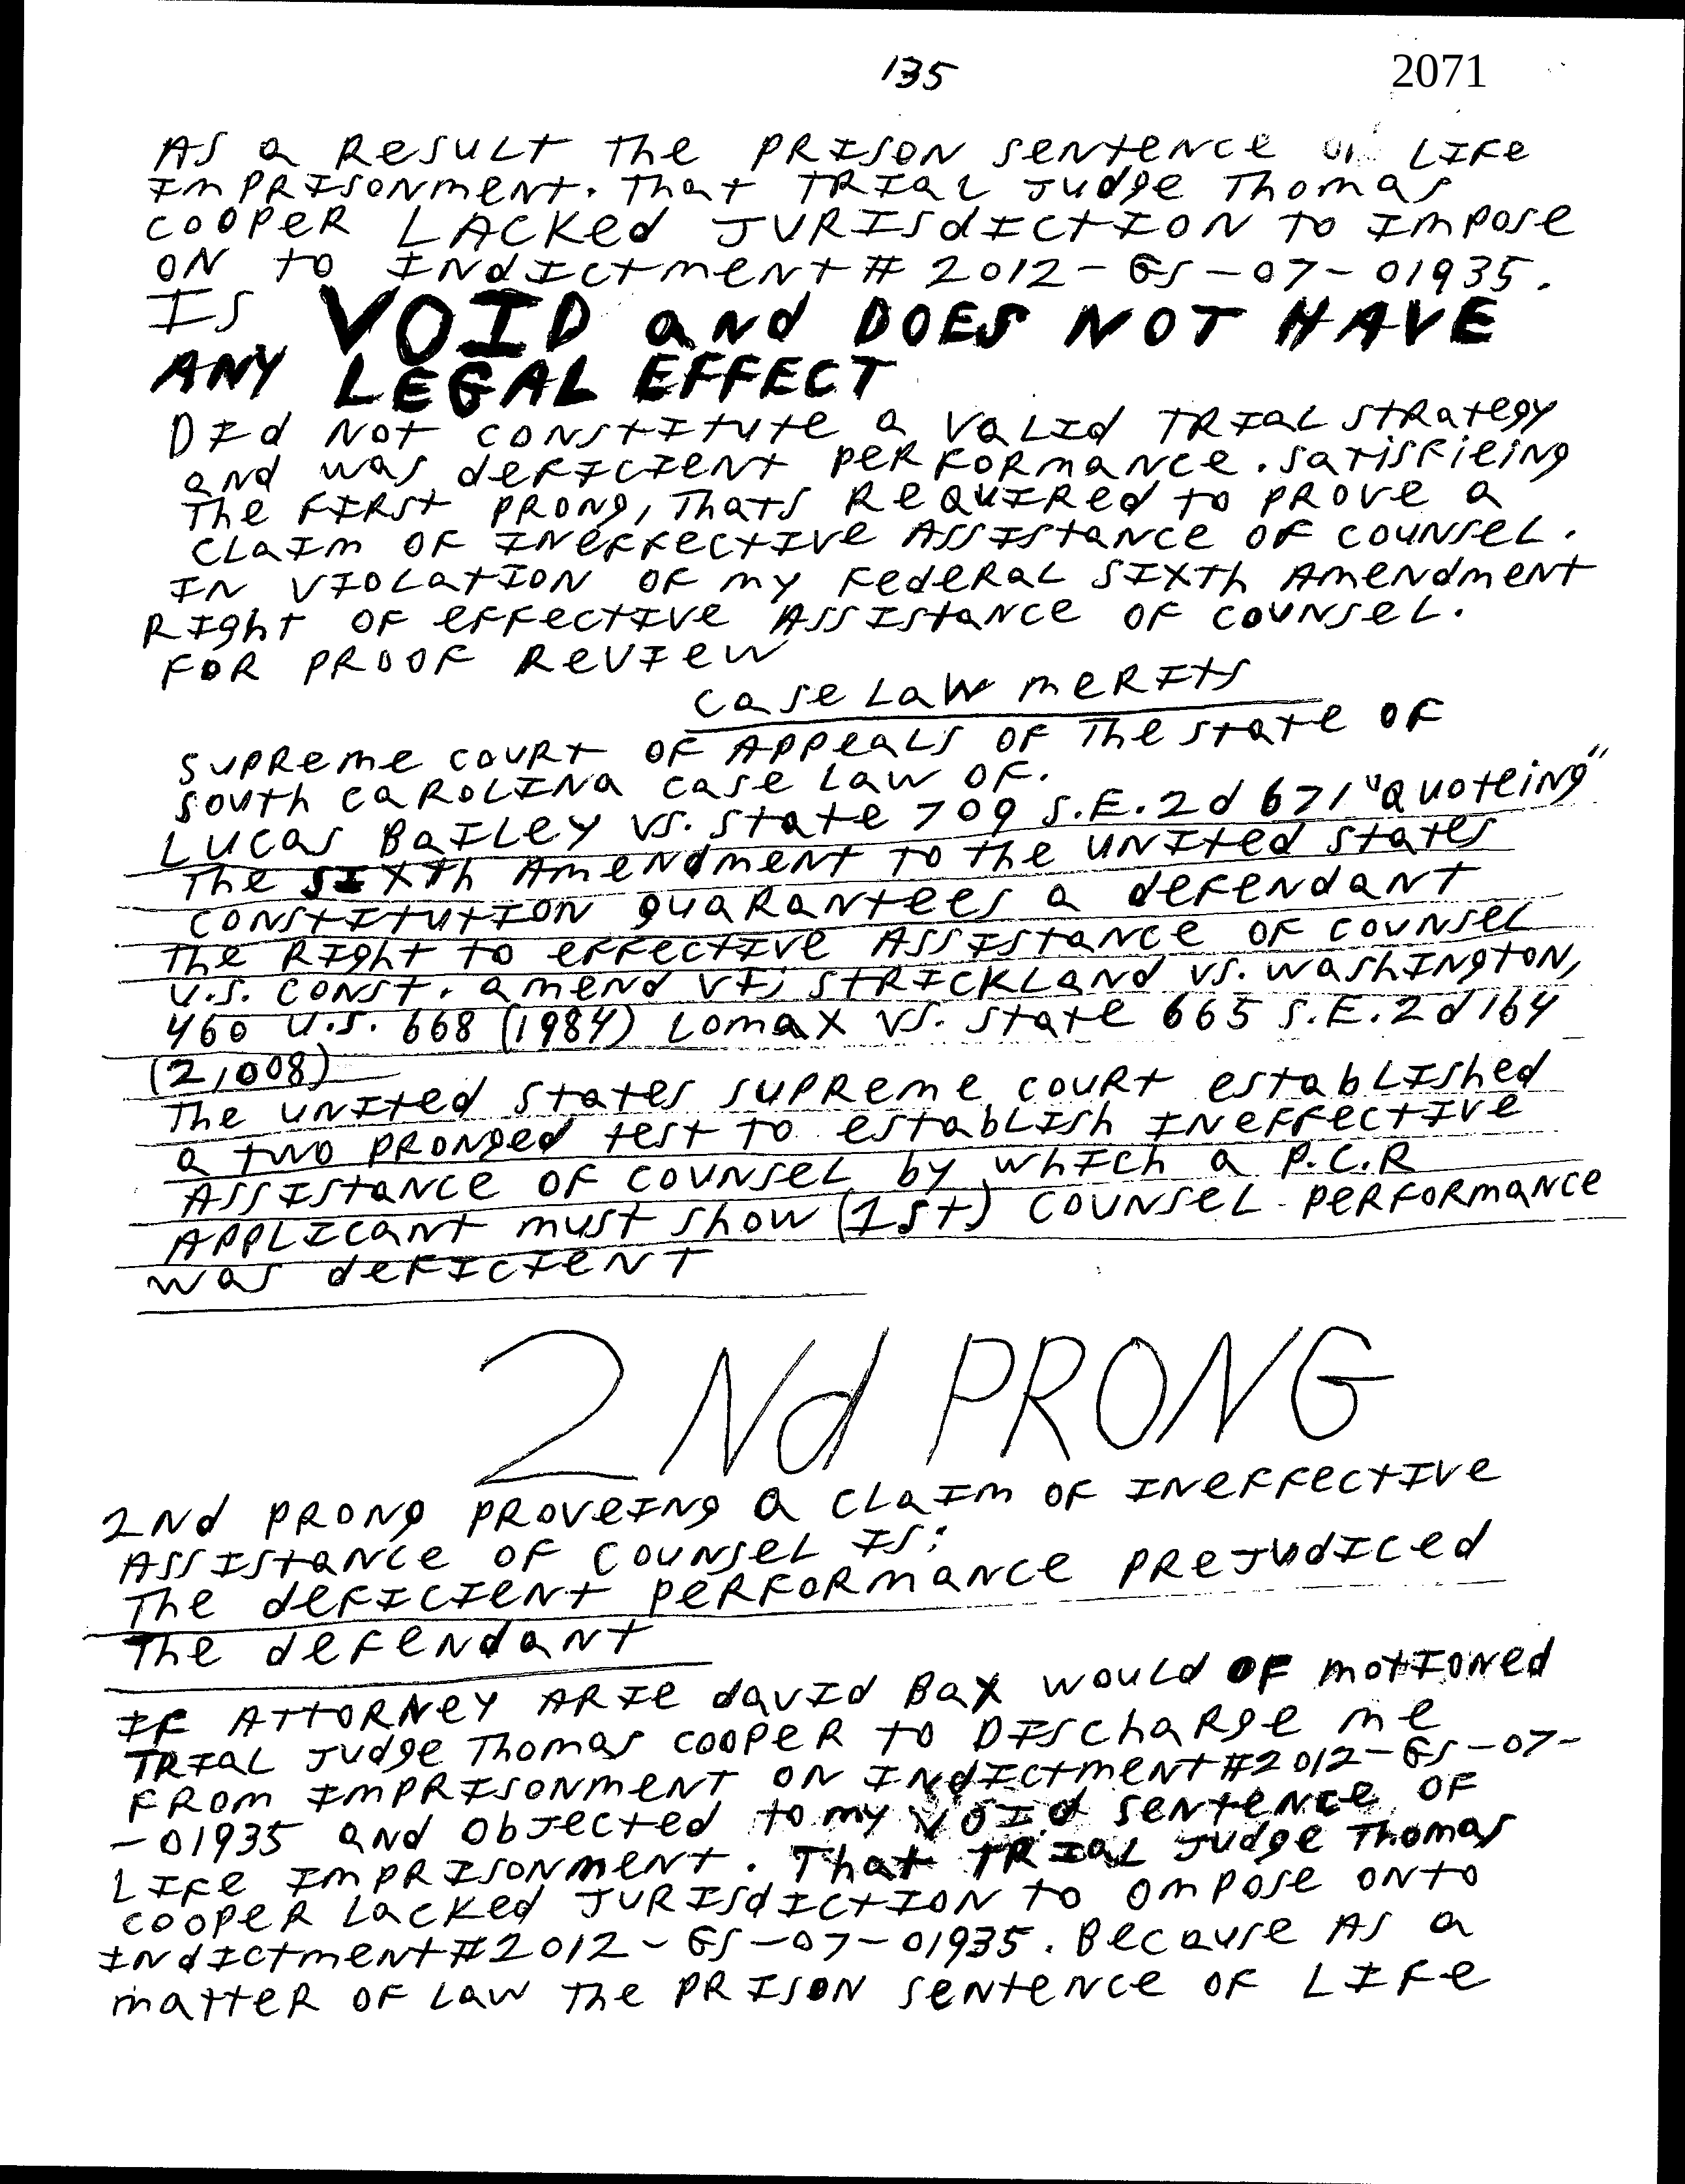 135 2071
As a Result the prison sentence of Life
Imprisonment. That Trial Judge Thomas
Cooper Lacked Jurisdiction to Impose
on to Indictment # 2012-GS-07-01935.
Is VOID and DOES NOT HAVE
ANY LEGAL EFFECT
Did Not constitute a valid Trial strategy
and was deficient performance. satisfieing
the First prong, thats Required to prove a
claim of Ineffective Assistance of counsel.
In violation of my Federal Sixth Amendment
Right of effective Assistance of counsel.
For proof Review
case Law merits
supreme court of Appeals of the state of
south carolina case Law of.
Lucas Bailey vs. state 709 S.E.2d 671 "Quoteing"
the sixth Amendment to the united states
constitution guarantees a defendant
the Right to effective Assistance of counsel
U.S. const. amend VI; Strickland vs. Washington,
460 U.S. 668 (1984) Lomax vs. state 665 S.E.2d 164
(2,008)
The united states supreme court established
a two pronged test to establish Ineffective
Assistance of counsel by which a P.C.R
Applicant must show (1st) counsel performance
was deficient
2Nd PRONG
2Nd prong proveing a claim of Ineffective
Assistance of counsel Is:
The deficient performance prejudiced
the defendant
If Attorney Arie david Bax would of motioned
Trial Judge Thomas Cooper to Discharge me
from Imprisonment on Indictment #2012-GS-07-
-01935 and objected to my void sentence of
Life Imprisonment. That Trial Judge Thomas
Cooper Lacked Jurisdiction to ompose onto
Indictment #2012-GS-07-01935. Because As a
matter of Law the prison sentence of Life